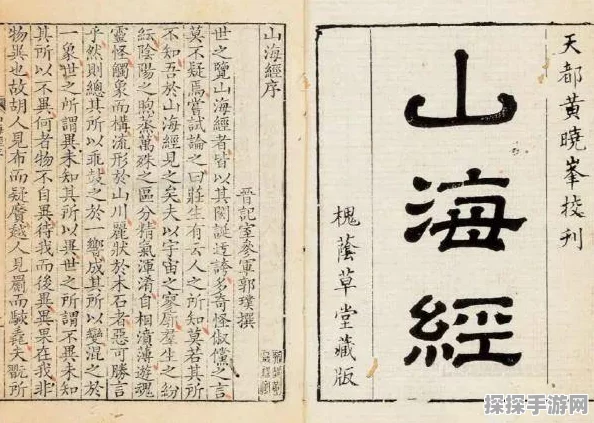 天都黄曉峯挍刊
山海經
槐蔭草堂藏版
山海經序
晉記室參軍郭璞撰
世之覽山海經者皆以其閎誕迂誇多奇怪俶儻之言
莫不疑焉嘗試論之曰莊生有云人之所知莫若其所
不知吾於山海經見之矣夫以宇宙之寥廓羣生之紛
紜陰陽之煦蒸萬殊之區分精氣渾淆自相濆薄遊魂
靈怪觸象而構流形於山川麗狀於木石者惡可勝言
乎然則總其所以乖鼓之於一響成其所以變混之於
一象世之所謂異未知其所以異世之所謂不異未知
其所以不異何者物不自異待我而後異異果在我非
物異也故胡人見布而疑黂越人見罽而駭毳夫翫所
探探手游网